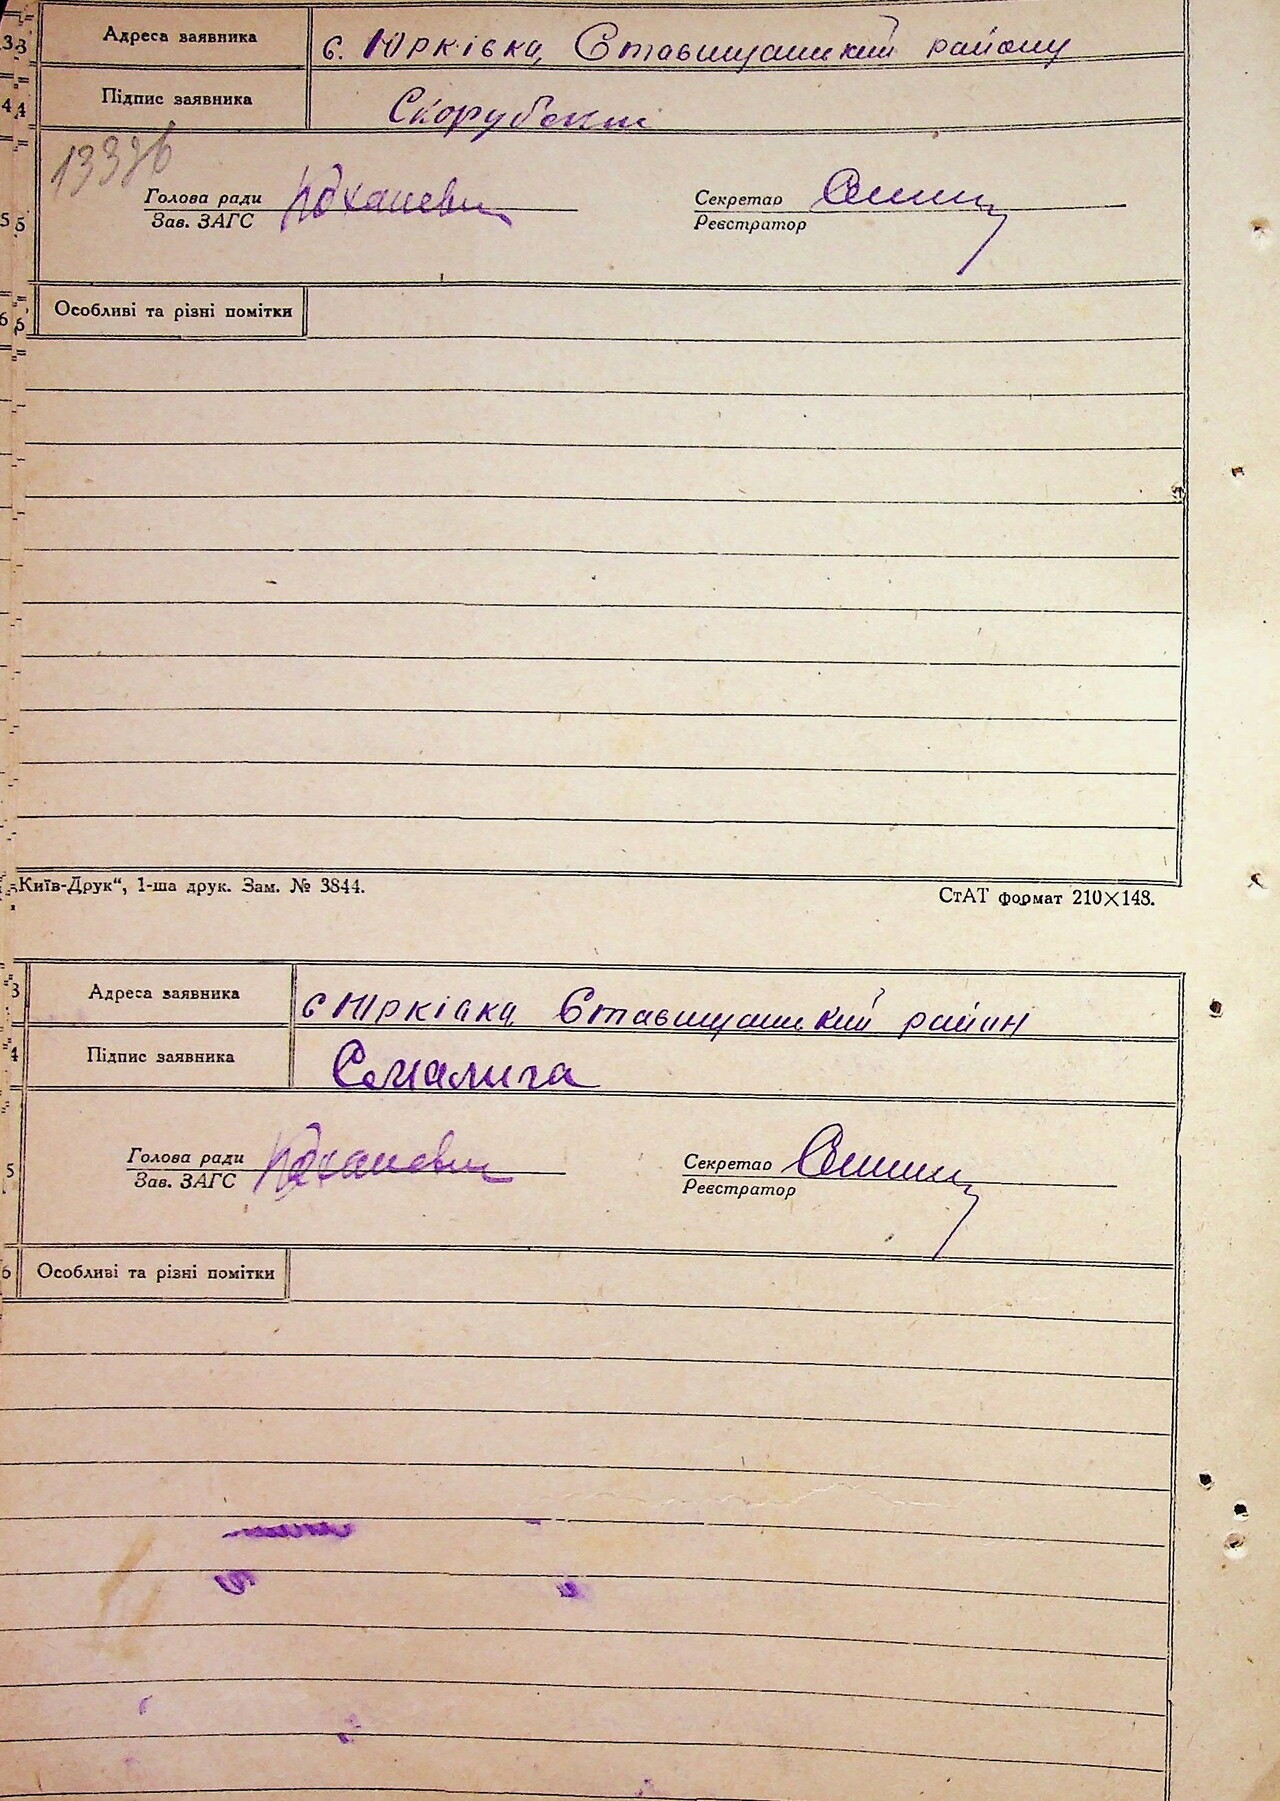 33 Адреса заявника с. Юрківка, Ставищанський району
44 Підпис заявника
Голова ради Секретар
55 Зав. ЗАГС Реєстратор
66 Особливі та різні помітки
„Київ-Друк“, 1-ша друк. Зам. № 3844. СтАТ формат 210×148.
3 Адреса заявника с Юрківка, Ставищанський район
4 Підпис заявника Смалига
Голова ради Секретар
5 Зав. ЗАГС Реєстратор
6 Особливі та різні помітки